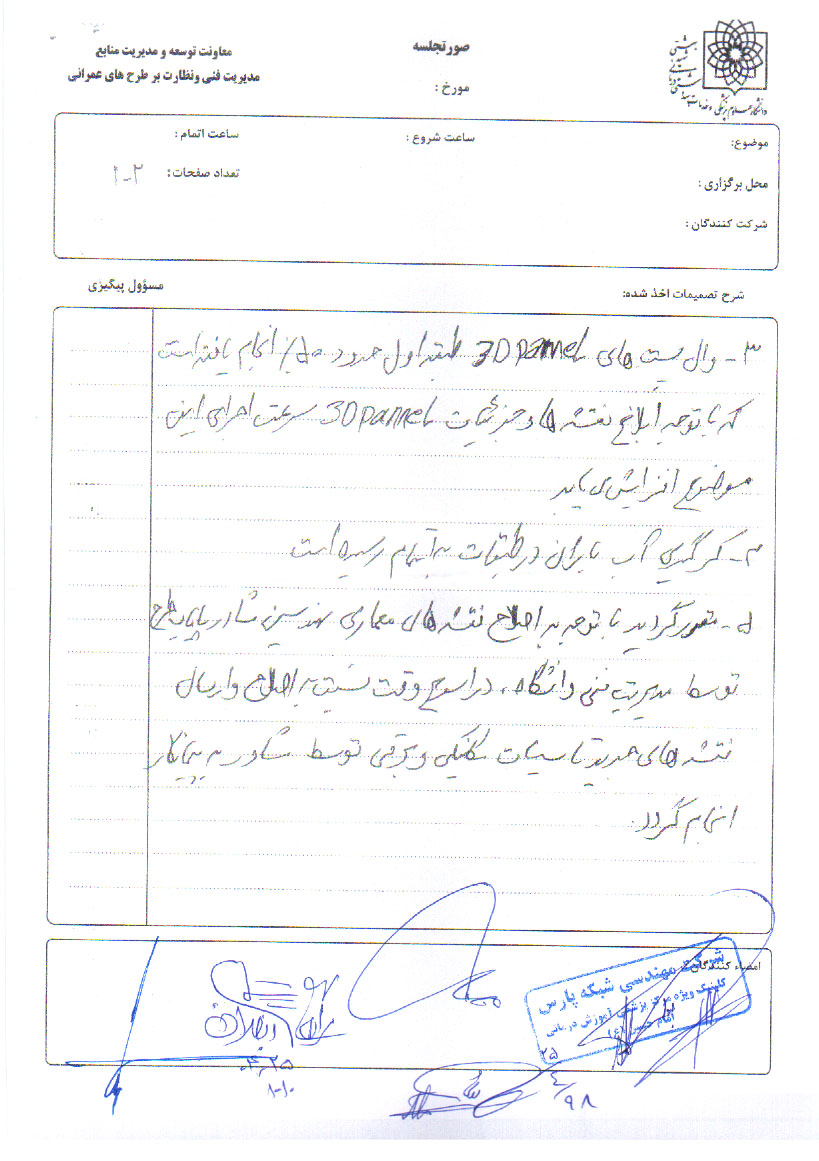 معاونت توسعه و مدیریت منابع
مدیریت فنی ونظارت بر طرح های عمرانی
صورتجلسه
مورخ :
دانشگاه علوم پزشکی و خدمات
موضوع:
ساعت شروع :
ساعت اتمام :
محل برگزاری :
تعداد صفحات: ۲-۲
شرکت کنندگان :
شرح تصمیمات اخذ شده:
مسؤول پیگیری
۳- وال پست های 3D panel طبقه اول حدود ۵۰٪ انجام یافته است
که با توجه ابلاغ نقشه ها و جزئیات 3D panel سرعت اجرای این
موضوع افزایش می یابد
۴- کرگیری آب باران در طبقات به اتمام رسیده است
۵- مقرر گردید با توجه به اصلاح نقشه های معماری مهندسین مشاور طرح
توسط مدیریت فنی دانشگاه، در اسرع وقت نسبت به اصلاح و ارسال
نقشه های جدید تاسیسات مکانیکی و برقی توسط مشاور به پیمانکار
انجام گردد.
امضاء کنندگان:
شرکت مهندسی شبکه پارس
کلینیک ویژه مرکز پزشکی آموزشی درمانی
امام حسین (ع)